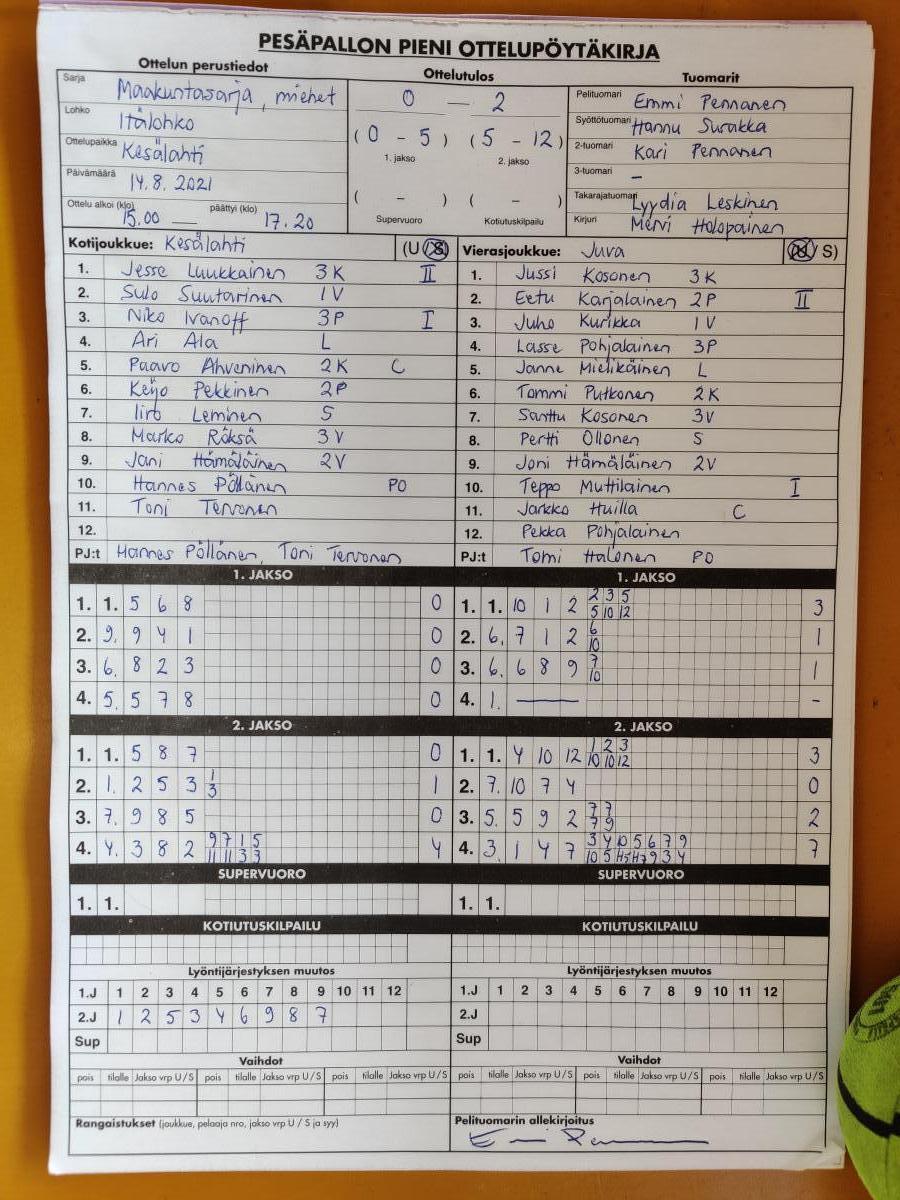 PESÄPALLON PIENI OTTELUPÖYTÄKIRJA
Ottelun perustiedot
Sarja Maakuntasarja, miehet
Lohko Itälohko
Ottelupaikka Kesälahti
Päivämäärä 14.8.2021
Ottelu alkoi (klo) 15.00 päättyi (klo) 17.20
Ottelutulos
0 — 2
(0 - 5) (5 - 12)
1. jakso 2. jakso
( - ) ( - )
Supervuoro Kotiutuskilpailu
Tuomarit
Pelituomari Emmi Pennanen
Syöttötuomari Hannu Surakka
2-tuomari Kari Pennanen
3-tuomari –
Takarajatuomari Lyydia Leskinen
Kirjuri Mervi Holopainen
Kotijoukkue: Kesälahti (U/S)
1. Jesse Luukkainen 3K II
2. Sulo Suutarinen 1V
3. Niko Ivanoff 3P I
4. Ari Ala L
5. Paavo Ahveninen 2K C
6. Keijo Pekkinen 2P
7. Iiro Leminen S
8. Marko Röksä 3V
9. Jani Hämäläinen 2V
10. Hannes Pöllänen PO
11. Toni Tervonen
12.
PJ:t Hannes Pöllänen, Toni Tervonen
Vierasjoukkue: Juva (U/S)
1. Jussi Kosonen 3K
2. Eetu Karjalainen 2P II
3. Juho Kurikka 1V
4. Lasse Pohjalainen 3P
5. Janne Mielikäinen L
6. Tommi Putkonen 2K
7. Santtu Kosonen 3V
8. Pertti Ollonen S
9. Joni Hämäläinen 2V
10. Teppo Muttilainen I
11. Jarkko Huilla C
12. Pekka Pohjalainen
PJ:t Tomi Halonen PO
1. JAKSO
1. 1. 5 6 8 0
2. 9. 9 4 1 0
3. 6. 8 2 3 0
4. 5. 5 7 8 0
1. JAKSO
2 3 5
1. 1. 10 1 2 5 10 12 3
6
2. 6. 7 1 2 10 1
7
3. 6. 6 8 9 10 1
4. 1. — -
2. JAKSO
1. 1. 5 8 7 0
1
2. 1. 2 5 3 3 1
3. 7. 9 8 5 0
9 7 1 5
4. 4. 3 8 2 11 11 3 3 4
2. JAKSO
1 2 3
1. 1. 4 10 12 10 10 12 3
2. 7. 10 7 4 0
7 7
3. 5. 5 9 2 7 9 2
3 4 10 5 6 7 9
4. 3. 1 4 7 7
SUPERVUORO
1. 1.
SUPERVUORO
1. 1.
KOTIUTUSKILPAILU
KOTIUTUSKILPAILU
Lyöntijärjestyksen muutos
1.J 1 2 3 4 5 6 7 8 9 10 11 12
2.J 1 2 5 3 4 6 9 8 7
Sup
Lyöntijärjestyksen muutos
1.J 1 2 3 4 5 6 7 8 9 10 11 12
2.J
Sup
Vaihdot
pois tilalle Jakso vrp U/S pois tilalle Jakso vrp U/S pois tilalle Jakso vrp U/S
Vaihdot
pois tilalle Jakso vrp U/S pois tilalle Jakso vrp U/S pois tilalle Jakso vrp U/S
Rangaistukset (joukkue, pelaaja nro, jakso vrp U / S ja syy)
Pelituomarin allekirjoitus